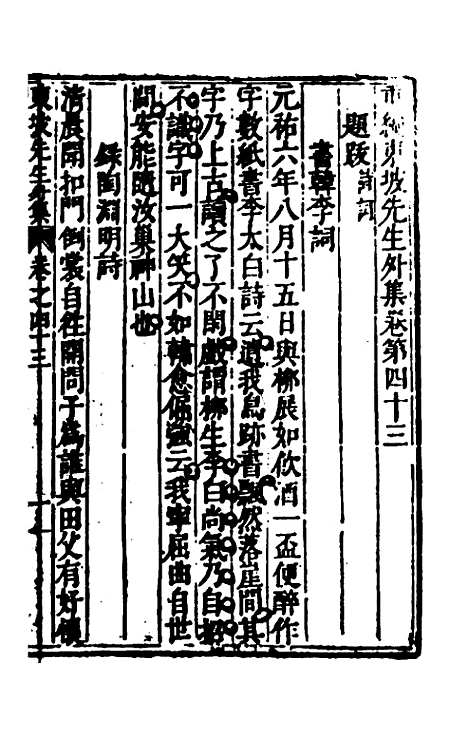 重編東坡先生外集卷第四十三
題跋 詩詞
書韓李詞
元祐六年八月十五日與柳展如飲酒一盃便醉作
字數紙書李太白詩云遺我鳥跡書飄然落巖間其
字乃上古讀之了不閑戲謂柳生李白尚氣乃自招
不識字可一大笑不如韓愈倔強云我寧屈曲自世
間安能隨汝巢神山也
錄陶淵明詩
清晨聞扣門倒裳自往開問子為誰與田父有好懷
東坡先生外集 卷之四十三